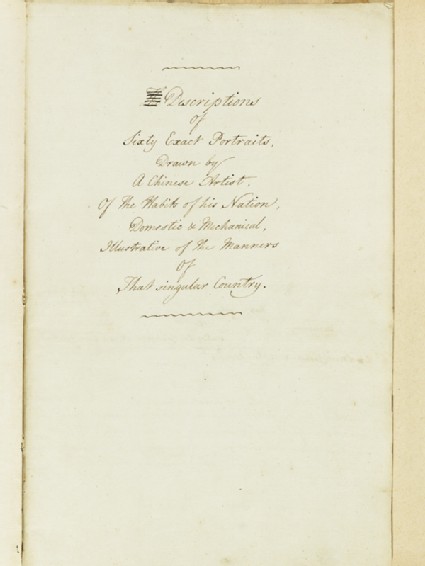 Descriptions
of
Sixty Exact Portraits,
Drawn by
A Chinese Artist.
Of the Habits of his Nation,
Domestic & Mechanical,
Illustrative of the Manners
Of
That singular Country.